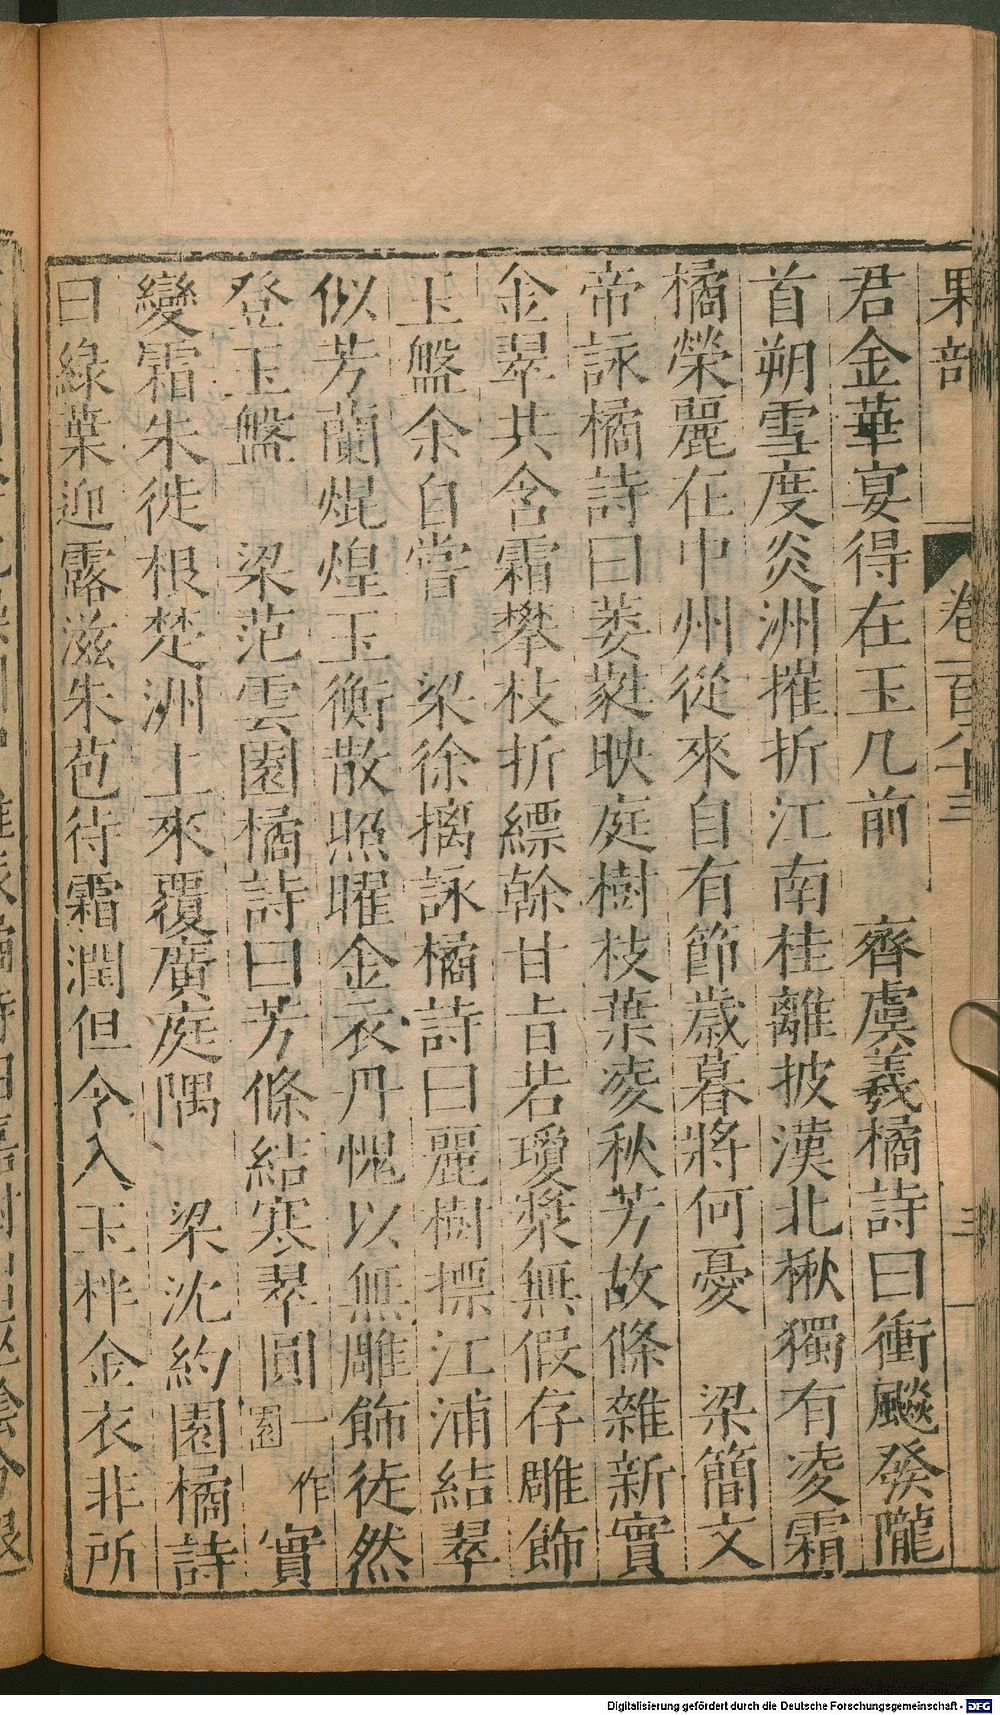 果部
卷一百八十三
三
君金華宴得在玉几前　齊虞羲橘詩曰衝飈發隴
首朔雪度炎洲摧折江南桂離披漠北楸獨有凌霜
橘榮麗在中州從來自有節歲暮將何憂　梁簡文
帝詠橘詩曰萎蕤映庭樹枝葉凌秋芳故條雜新實
金翠共含霜攀枝折縹幹甘旨若瓊漿無假存雕飾
玉盤余自嘗　梁徐摛詠橘詩曰麗樹標江浦結翠
似芳蘭焜煌玉衡散照曜金衣丹愧以無雕飾徒然
登玉盤　梁范雲園橘詩曰芳條結寒翠圓一作園實
變霜朱徙根楚洲上來覆廣庭隅　梁沈約園橘詩
曰綠葉迎露滋朱苞待霜潤但令入玉柈金衣非所
Digitalisierung gefördert durch die Deutsche Forschungsgemeinschaft - DFG